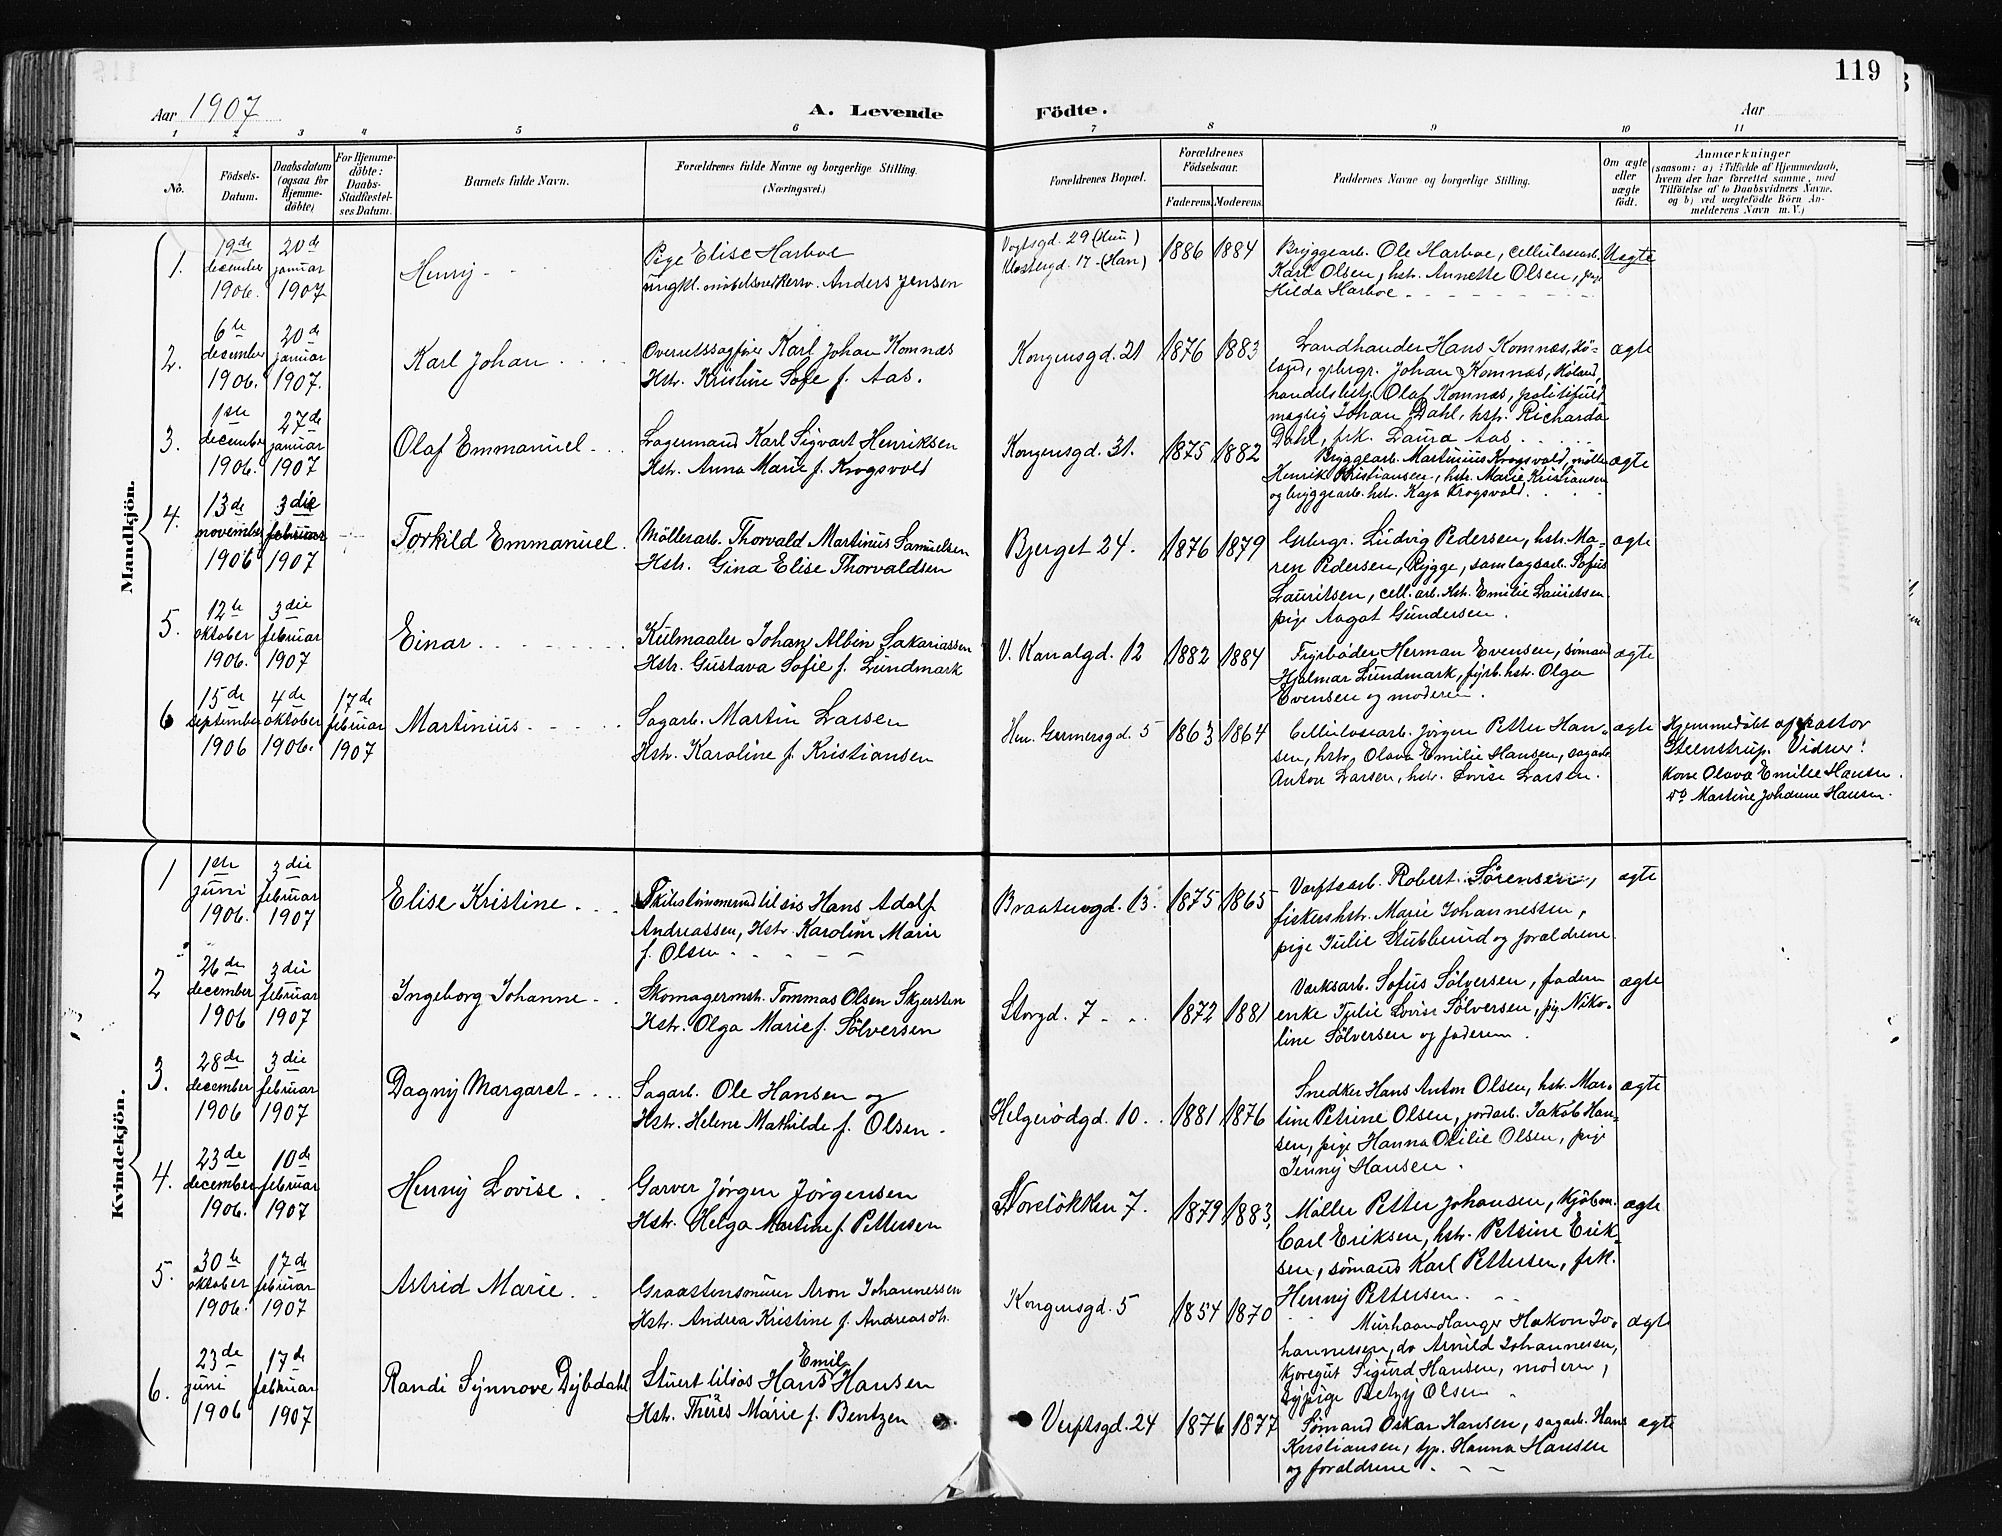 119
Aar 1907
A. Levende Födte.
Aar
1 2 3 4 5 6 7 8 9 10 11
No.
Födsels-Datum.
Daabsdatum (ogsaa for Hjemme-döbte)
For Hjemme-döbte: Daabs-Stadfæstel-ses Datum.
Barnets fulde Navn.
Forældrenes fulde Navne og borgerlige Stilling.
(Næringsvei.)
Forældrenes Bopæl.
Forældrenes Födselsaar.
Faderens. Moderens.
Faddernes Navne og borgerlige Stilling.
Om ægte eller uægte födt.
Anmærkninger
(saasom: a) i Tilfælde af Hjemmedaab, hvem der har forrettet samme, med Tilföielse af to Daabsvidners Navne. og b) ved uægtefödte Börn An-melderens Navn m. V.)
Mandkjön.
1. 19de december 1906. 20de januar 1907
Henry
Pige Elise Harboe
ungkl. Anders Jensen
Vogtsgd. 29 (Hun)
Klostergd. 17 (Han)
1886 1884
Bryggearb. Ole Harboe, cellulosearb.
Karl Olsen, hst. Annette Olsen, pige
Hilda Harboe
Uægte
2. 6te december 1906. 20de januar 1907.
Karl Johan
Overretssagfører Karl Johan Komnæs
Hstr. Kristine Sofie f. Aas.
Kongensgd. 21
1876 1883
Landhandler Hans Komnæs, Hö-
land, grbrgr. Johan Komnæs, Höland,
handelsbetj. Olaf Komnæs, politifuld
mægtig Johan Dahl, hst. Richarda
Dahl, frk. Laura Aas
ægte
3. 1ste december 1906. 27de januar 1907
Olaf Emmanuel
Lagermand Karl Sigvart Henriksen
Hstr. Anna Marie f. Krogsvold
Kongensgd. 31.
1875 1882
Bryggearb. Martinius Krogsvold, møller
Henrik Kristiansen, hstr. Marie Kristiansen
og bryggearb. hstr. Kaja Krogsvold.
ægte
4. 13de november 1906 3die februar 1907
Torkild Emmanuel.
Möllerarb. Thorvald Martinus Samuelsen
Hstr. Gina Elise Thorvaldsen
Bjerget 24.
1876 1879
Grbrgr. Ludvig Pedersen, hstr. Ma-
ren Pedersen, Rygge, samlagsarb. Sofus
Lauritsen, cell. arb. hstr. Emilie Lauritsen
pige Aagot Gundersen.
ægte
5. 12te oktober 1906. 3die februar 1907
Einar
Kulmaaler Johan Albin Sakariassen
Hstr. Gustava Sofie f. Lundmark
V. Kanalgd. 12
1882 1884
Fyrbøder Herman Evensen, sømand
Hjalmar Lundmark, fyrb. hstr. Olga
Evensen og moderen.
ægte
6 15de september 1906 4de oktober 1906. 17de februar 1907
Martinius
Sagarb. Martin Larsen
Hstr. Karoline f. Kristiansen
Hen. Gernersgd. 5
1863 1864
Cellulosearb. Jörgen Petter Han-
sen, hstr. Olava Emilie Hansen, sagarb.
Anton Larsen, hstr. Lovise Larsen.
ægte
Hjemmedöbt af pastor
Steenstrup. Vidner:
Kone Olava Emilie Hansen
do Martine Johanne Hansen.
Kvindekjön.
1 1ste juni 1906. 3die februar 1907
Elise Kristine
Skibstömmermand tilsös Hans Adolf
Andreassen, Hstr. Karoline Marie
f. Olsen
Braatengd. 13
1875 1865
Værftsarb. Robert Sørensen,
fiskerhstr. Marie Johannessen,
pige Julie Stubberud og forældrene
ægte
2 26de december 1906 3die februar 1907
Ingeborg Johanne
Skomagermstr. Tommas Olsen Skjersten
Hstr. Olga Marie f. Sölversen
Storgd. 7
1872 1881
Værksarb. Sofus Sölversen, faderen
enke Julie Lovise Sölversen, pig. Niko-
line Sölversen og faderen.
ægte
3. 28de december 1906 3die februar 1907
Dagny Margaret
Sagarb. Ole Hansen og
Hstr. Helene Mathilde f. Olsen
Helgerödgd. 10
1881 1876
Snedker Hans Anton Olsen, hst. Mar-
tine Petrine Olsen, jordarb. Jakob Han-
sen, pige Hanna Otilie Olsen, pige
Jenny Hansen.
ægte
4. 23de december 1906. 10de februar 1907
Henny Lovise
Garver Jörgen Jörgensen
Hstr. Helga Martine f. Pettersen
Norelökken 7.
1879 1883
Møller Petter Johansen, kjöbm.
Carl Eriksen, hstr. Petrine Erik-
sen, sømand Karl Pettersen, frk.
Henny Pettersen
ægte
5. 30te oktober 1906. 17de februar 1907
Astrid Marie
Graastensmurer Aron Johannessen
Hstr. Andrea Kristine f. Andreasdtr.
Kongensgd. 5
1854 1870
Murhaandlanger Hakon Jo-
hannessen, do Arnild Johannessen,
kjøregut Sigurd Hansen, moderen,
sypige Betzy Olsen
ægte
6. 23de juni 1906 17de februar 1907
Randi Synnove Dybdahl
Stuert tilsös Hans Emil Hansen
Hstr. Theres Marie f. Bentzen
Verftsgd. 24
1876 1877
Sømand Oskar Hansen, sagarb. Hans
Kristiansen, tjp. Hanna Hansen
og forældrene
ægte